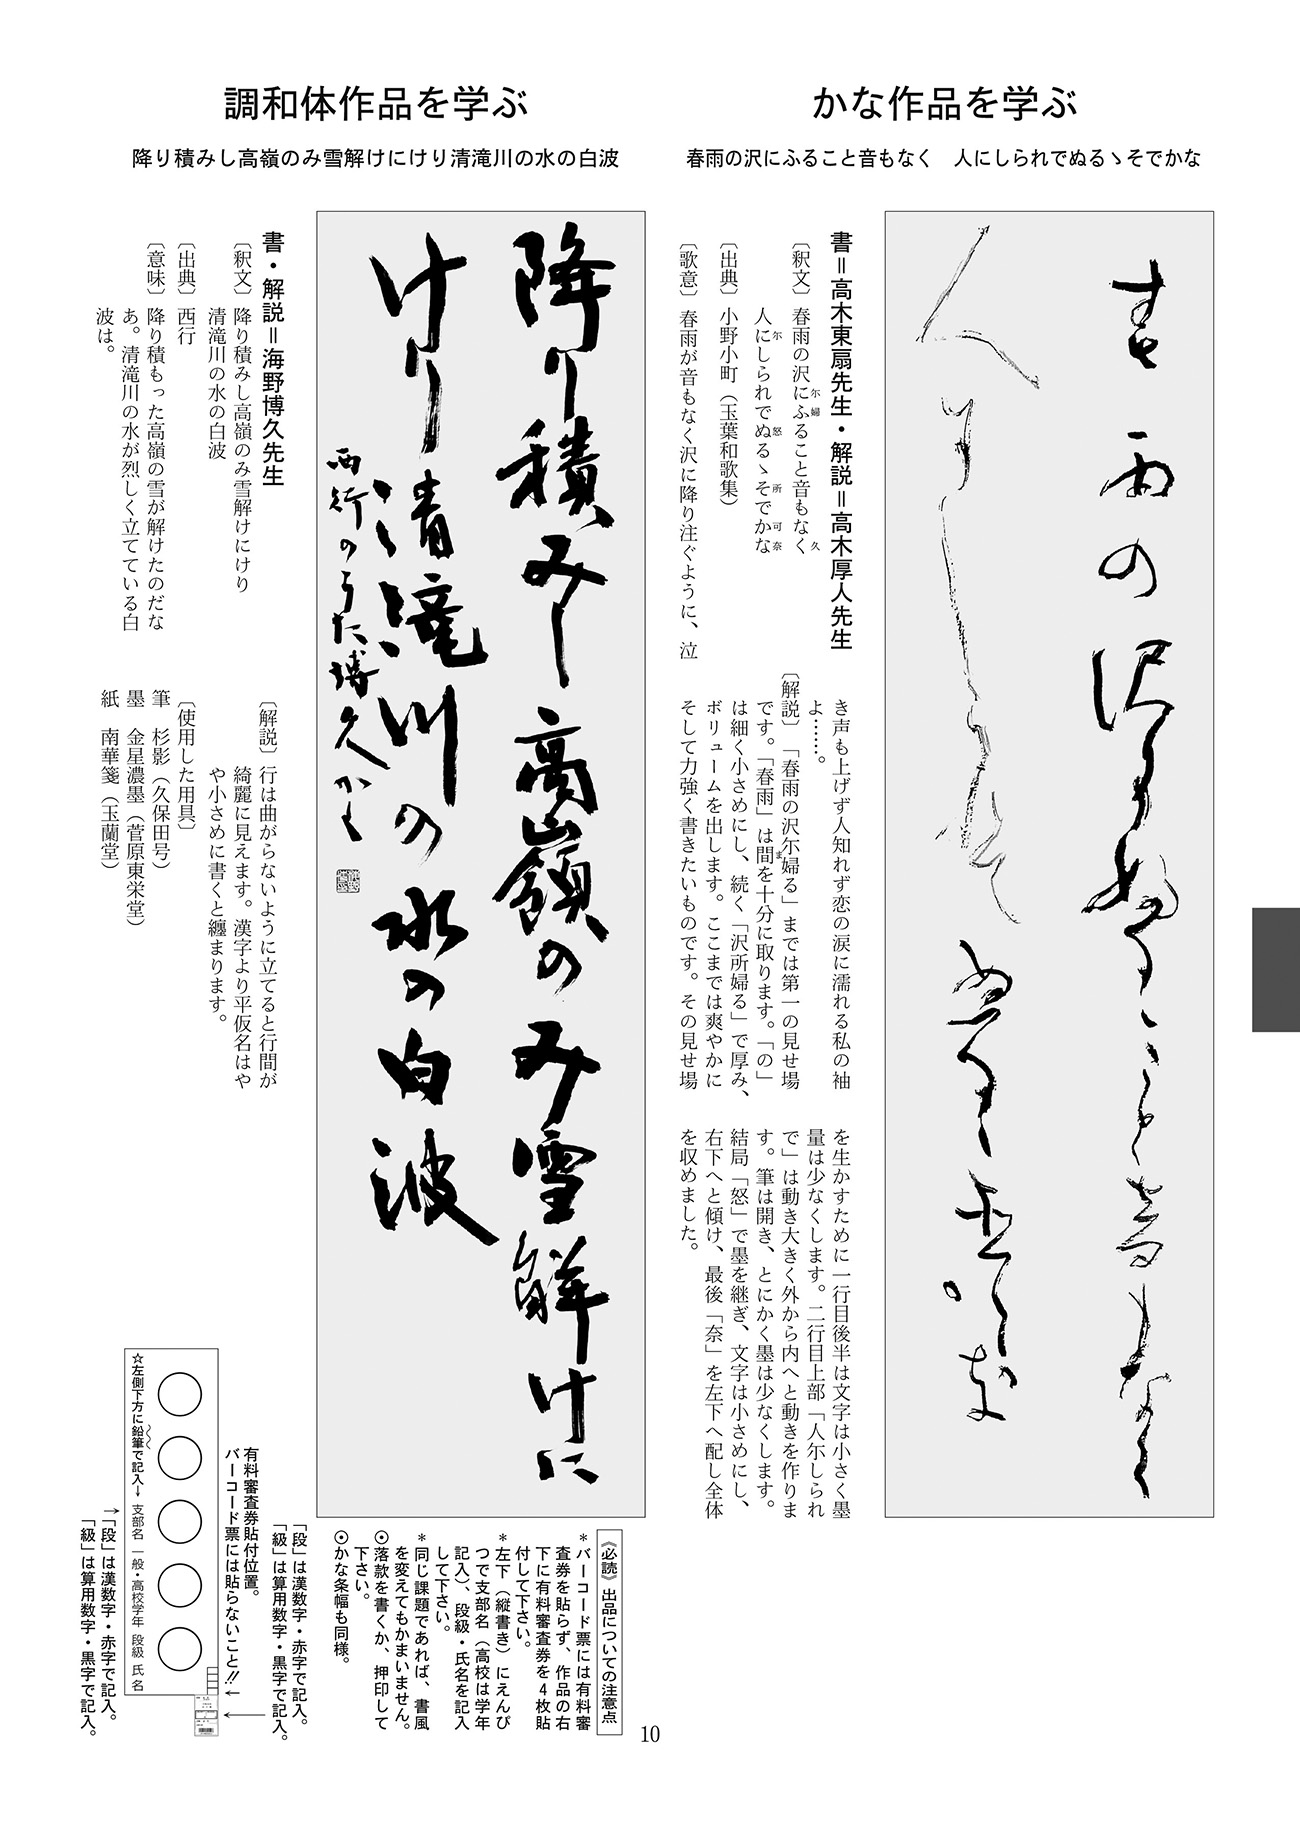 かな作品を学ぶ
春雨の沢にふること音もなく　人にしられでぬるゝそでかな
書＝高木東扇先生・解説＝高木厚人先生
〔釈文〕春雨の沢にふること音もなく
尓婦
久
人にしられでぬるゝそでかな
尓
怒
所
可奈
〔出典〕小野小町（玉葉和歌集）
〔歌意〕春雨が音もなく沢に降り注ぐように、泣
き声も上げず人知れず恋の涙に濡れる私の袖
よ……。
〔解説〕「春雨の沢尓婦る」までは第一の見せ場
です。「春雨」は間を十分に取ります。「の」
ま
は細く小さめにし、続く「沢所婦る」で厚み、
ボリュームを出します。ここまでは爽やかに
そして力強く書きたいものです。その見せ場
を生かすために一行目後半は文字は小さく墨
量は少なくします。二行目上部「人尓しられ
で」は動き大きく外から内へと動きを作りま
す。筆は開き、とにかく墨は少なくします。
結局「怒」で墨を継ぎ、文字は小さめにし、
右下へと傾け、最後「奈」を左下へ配し全体
を収めました。
調和体作品を学ぶ
降り積みし高嶺のみ雪解けにけり清滝川の水の白波
降り積みし高嶺のみ雪解けに
けり清滝川の水の白波
西行のうた博久かく
書・解説＝海野博久先生
〔釈文〕降り積みし高嶺のみ雪解けにけり
清滝川の水の白波
〔出典〕西行
〔意味〕降り積もった高嶺の雪が解けたのだな
あ。清滝川の水が烈しく立てている白
波は。
〔解説〕行は曲がらないように立てると行間が
綺麗に見えます。漢字より平仮名はや
や小さめに書くと纏まります。
〔使用した用具〕
筆　杉影（久保田号）
墨　金星濃墨（菅原東栄堂）
紙　南華箋（玉蘭堂）
《必読》出品についての注意点
＊バーコード票には有料審
査券を貼らず、作品の右
下に有料審査券を４枚貼
付して下さい。
＊左下（縦書き）にえんぴ
つで支部名（高校は学年
記入）、段級・氏名を記入
して下さい。
＊同じ課題であれば、書風
を変えてもかまいません。
⊙落款を書くか、押印して
下さい。
⊙かな条幅も同様。
「段」は漢数字・赤字で記入。
「級」は算用数字・黒字で記入。
有料審査券貼付位置。
バーコード票には貼らないこと!!
☆左側下方に鉛筆で記入→ 支部名 一般・高校学年 段級 氏名
「段」は漢数字・赤字で記入。
「級」は算用数字・黒字で記入。
10